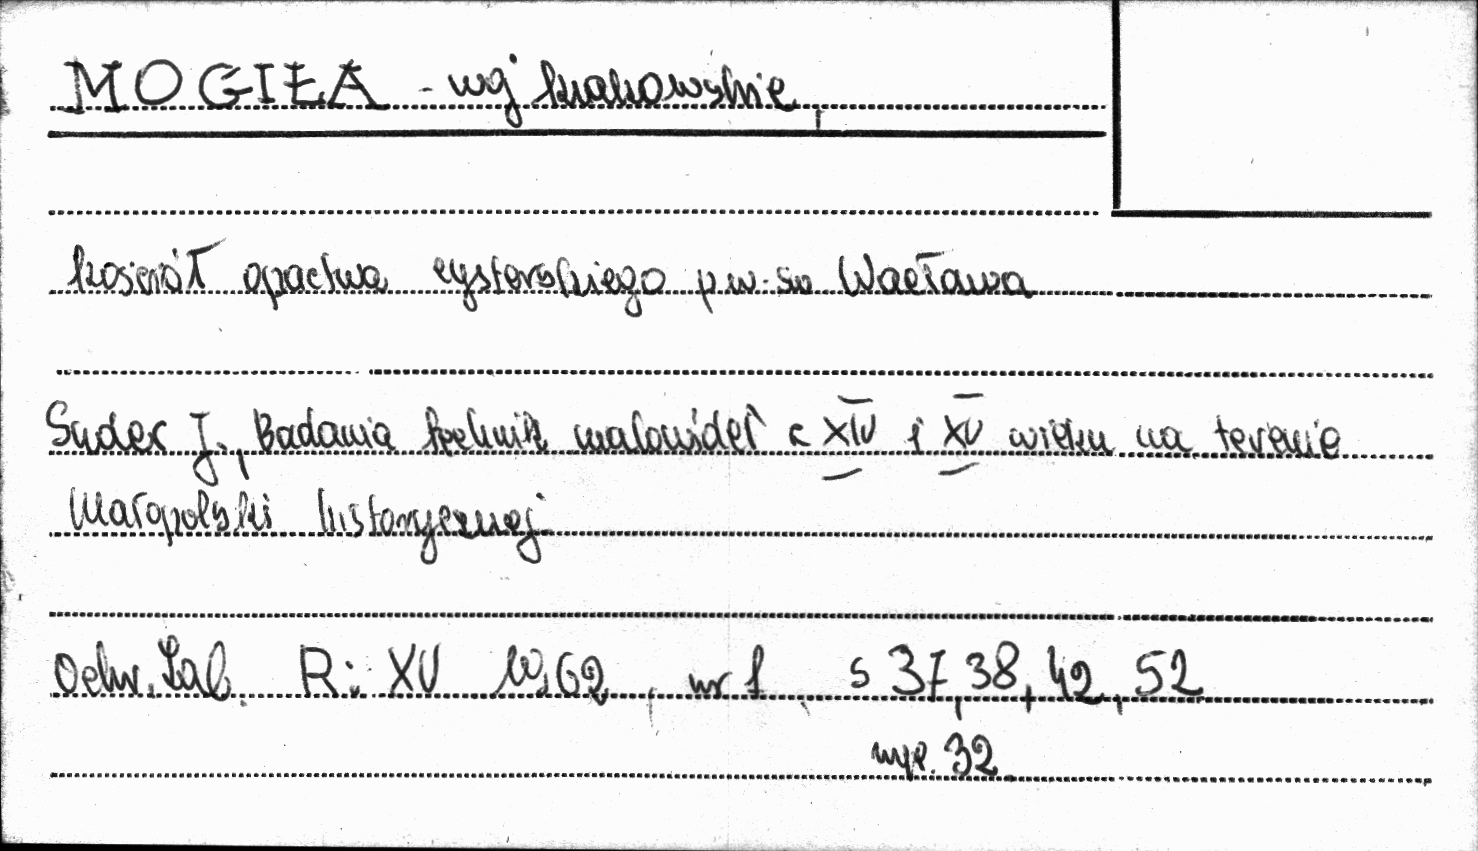 MOGIŁA - woj krakowskie,
kościół opactwa cysterskiego p.w. św Wacława
J., Badania technik malowideł z XIV i XV wieku na terenie
Małopolski historycznej
Ochr. Zab. R: XV, nr 1, s 37, 38, 42, 52
ryc. 32